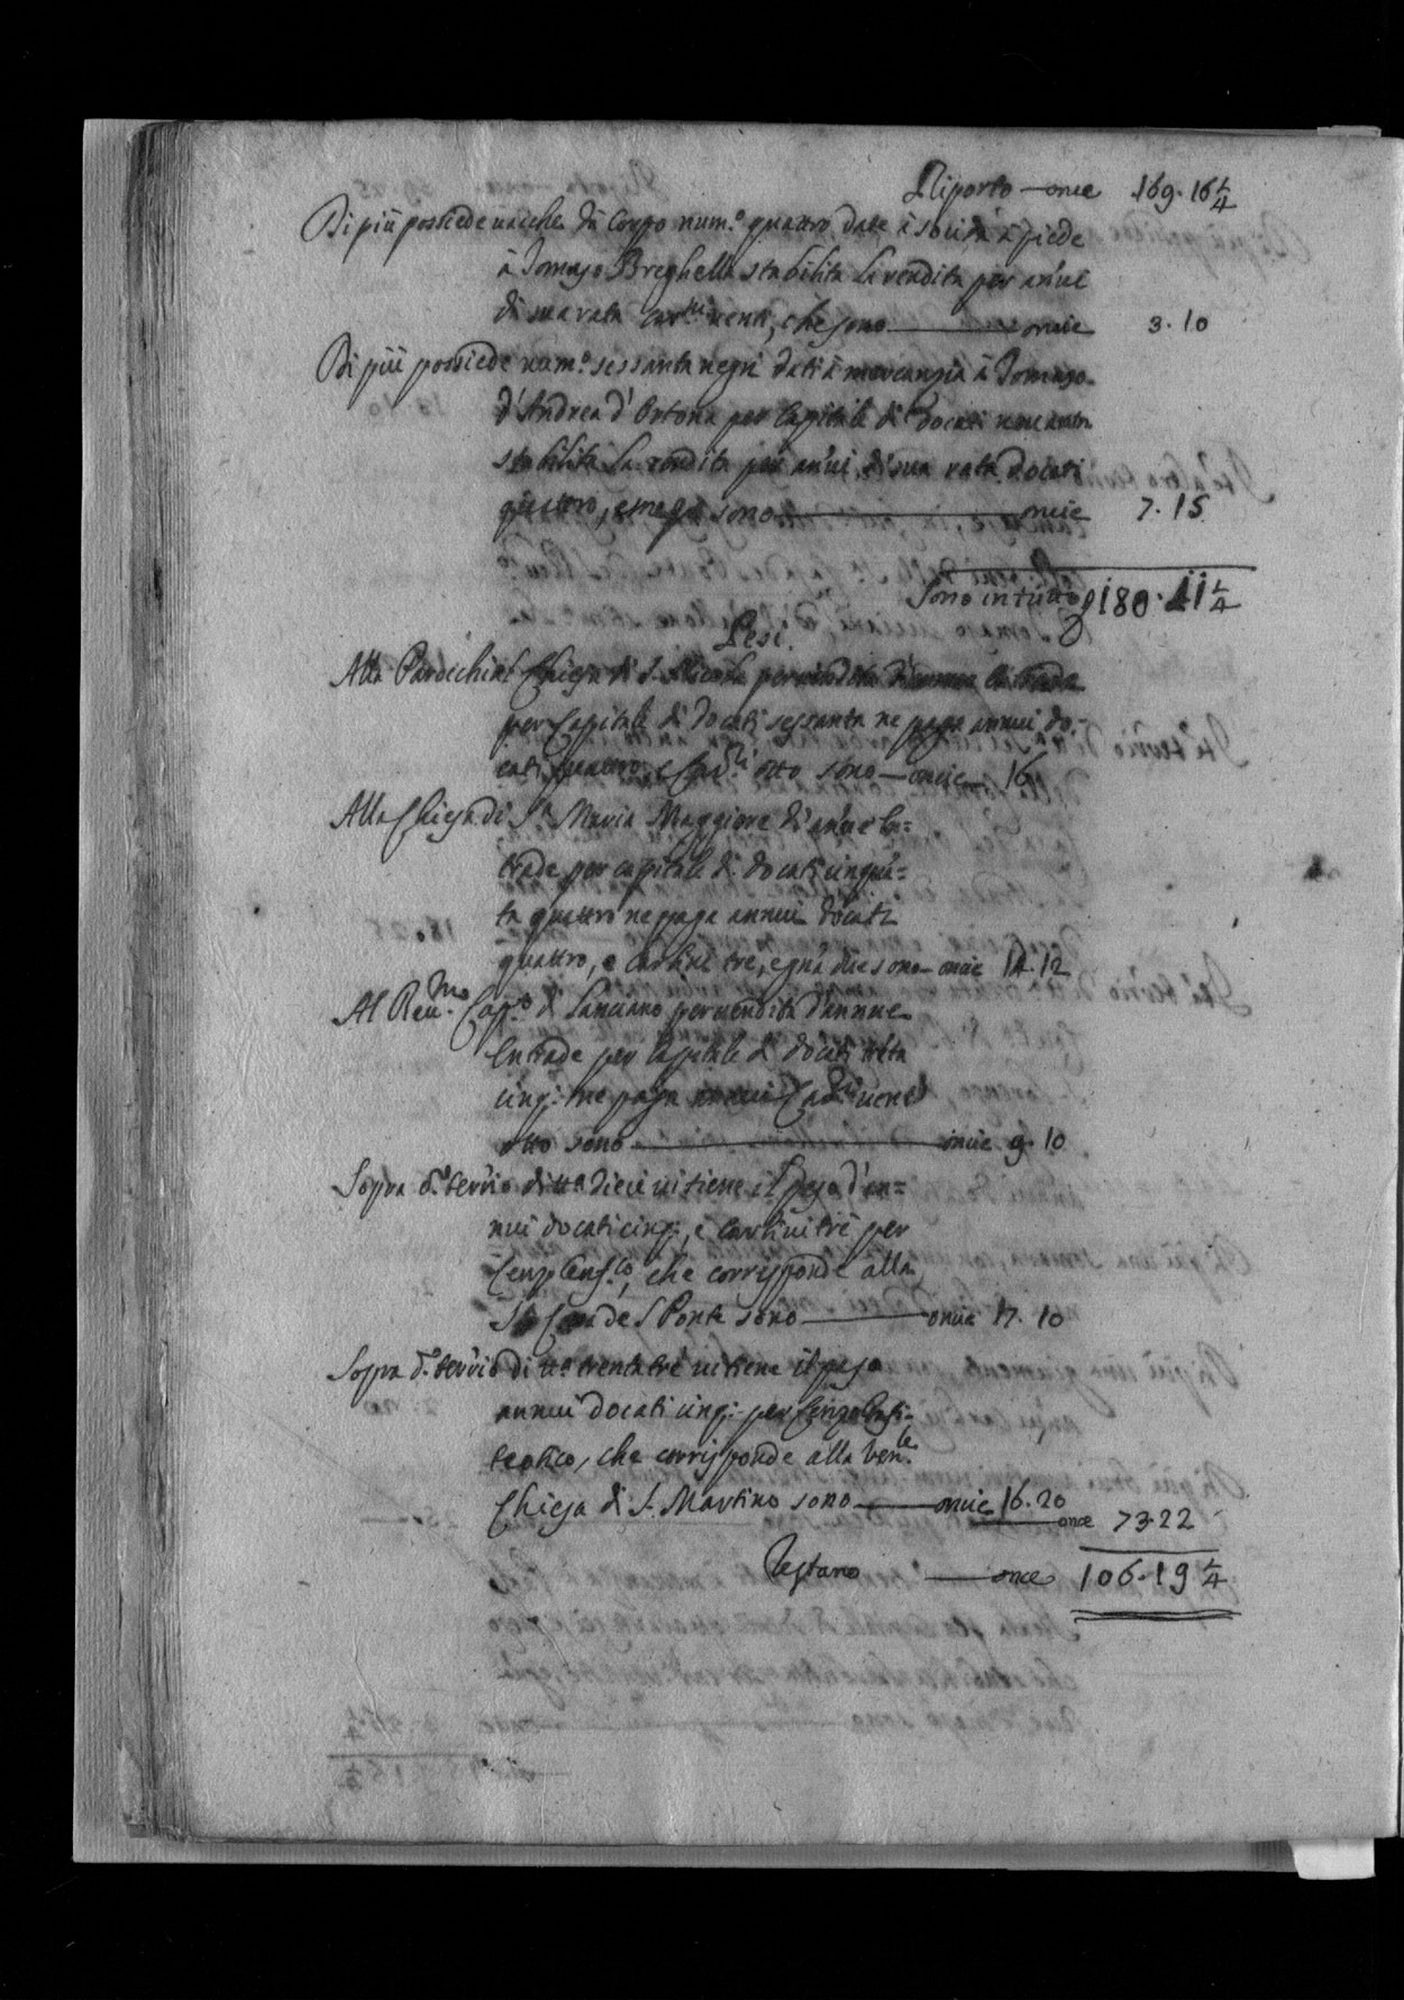 Riporto — once 169. 16 1/4
Di più possiede vacche da Corpo num.º quattro date à socita à piede
à Tomaso Breghella stabilita la rendita per an'ue
di sua rata carlni venti, che sono — oncie 3. 10
Di più possiede num.º sessanta negri dati à mercanzia à Tomaso
d'Andrea d'Ortona per Capitale di docati
stabilita la rendita per an'ui di sua rata docati
quattro, e mezo sono — oncie 7. 15
Sono in tutto 180. 11 1/4
Pesi.
Alla Parochial Chiesa di S. Nicola per vendita d'annue entrade
per Capitale di docati sessanta ne paga annui do:
cati quattro, e Carl.ni otto sono — oncie 16
Alla Chiesa di S.ª Maria Maggiore di an'ue en=
trade per capitale di docati cinquā=
ta quattro ne paga annui docati
quattro, e carlini tre, e gna due sono — oncie 14. 12
Al Reu.mo Cap.º di Lanciano per vendita d'annue
entrade per Capitale di docati
cinq: ne paga annui Carl.ni vent'
otto sono — oncie 9. 10
Sopra d.º terr'io di tta dieci vi tiene il peso d'an=
nui docati cinq:, e carlini trè per
Cenzo Enf.co, che corrisponde alla
S.ta Casa del Ponte sono — oncie 17. 10
Sopra d.º terr'io di tta trenta trè vi tiene il peso
annui docati cinq: per Cenzo Enfi=
teotico, che corrisponde alla Ven.le
Chiesa di S. Martino sono — oncie 16. 20
once 73. 22
Restano — once 106. 19 1/4